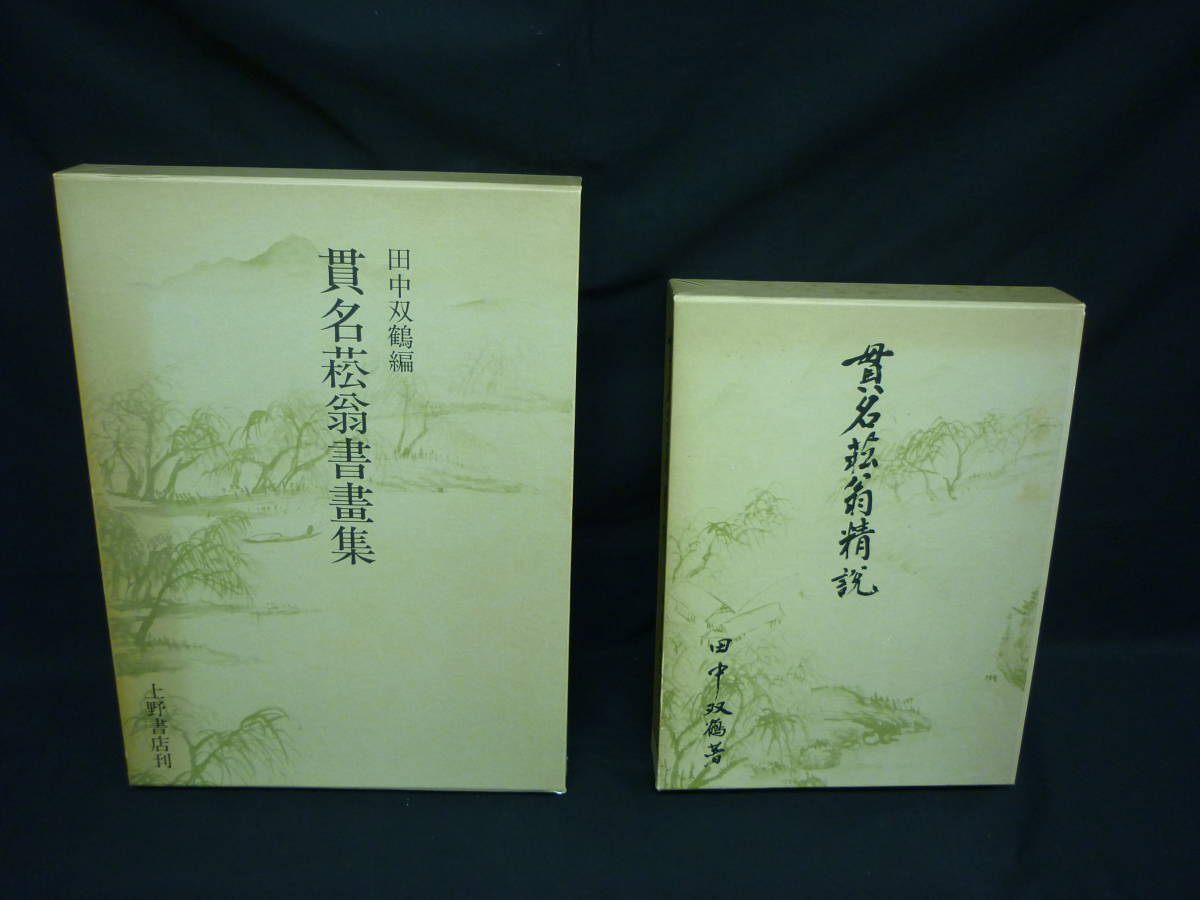 田中双鶴編
貫名菘翁書畫集
上野書店刊
貫名菘翁精説
田中双鶴著